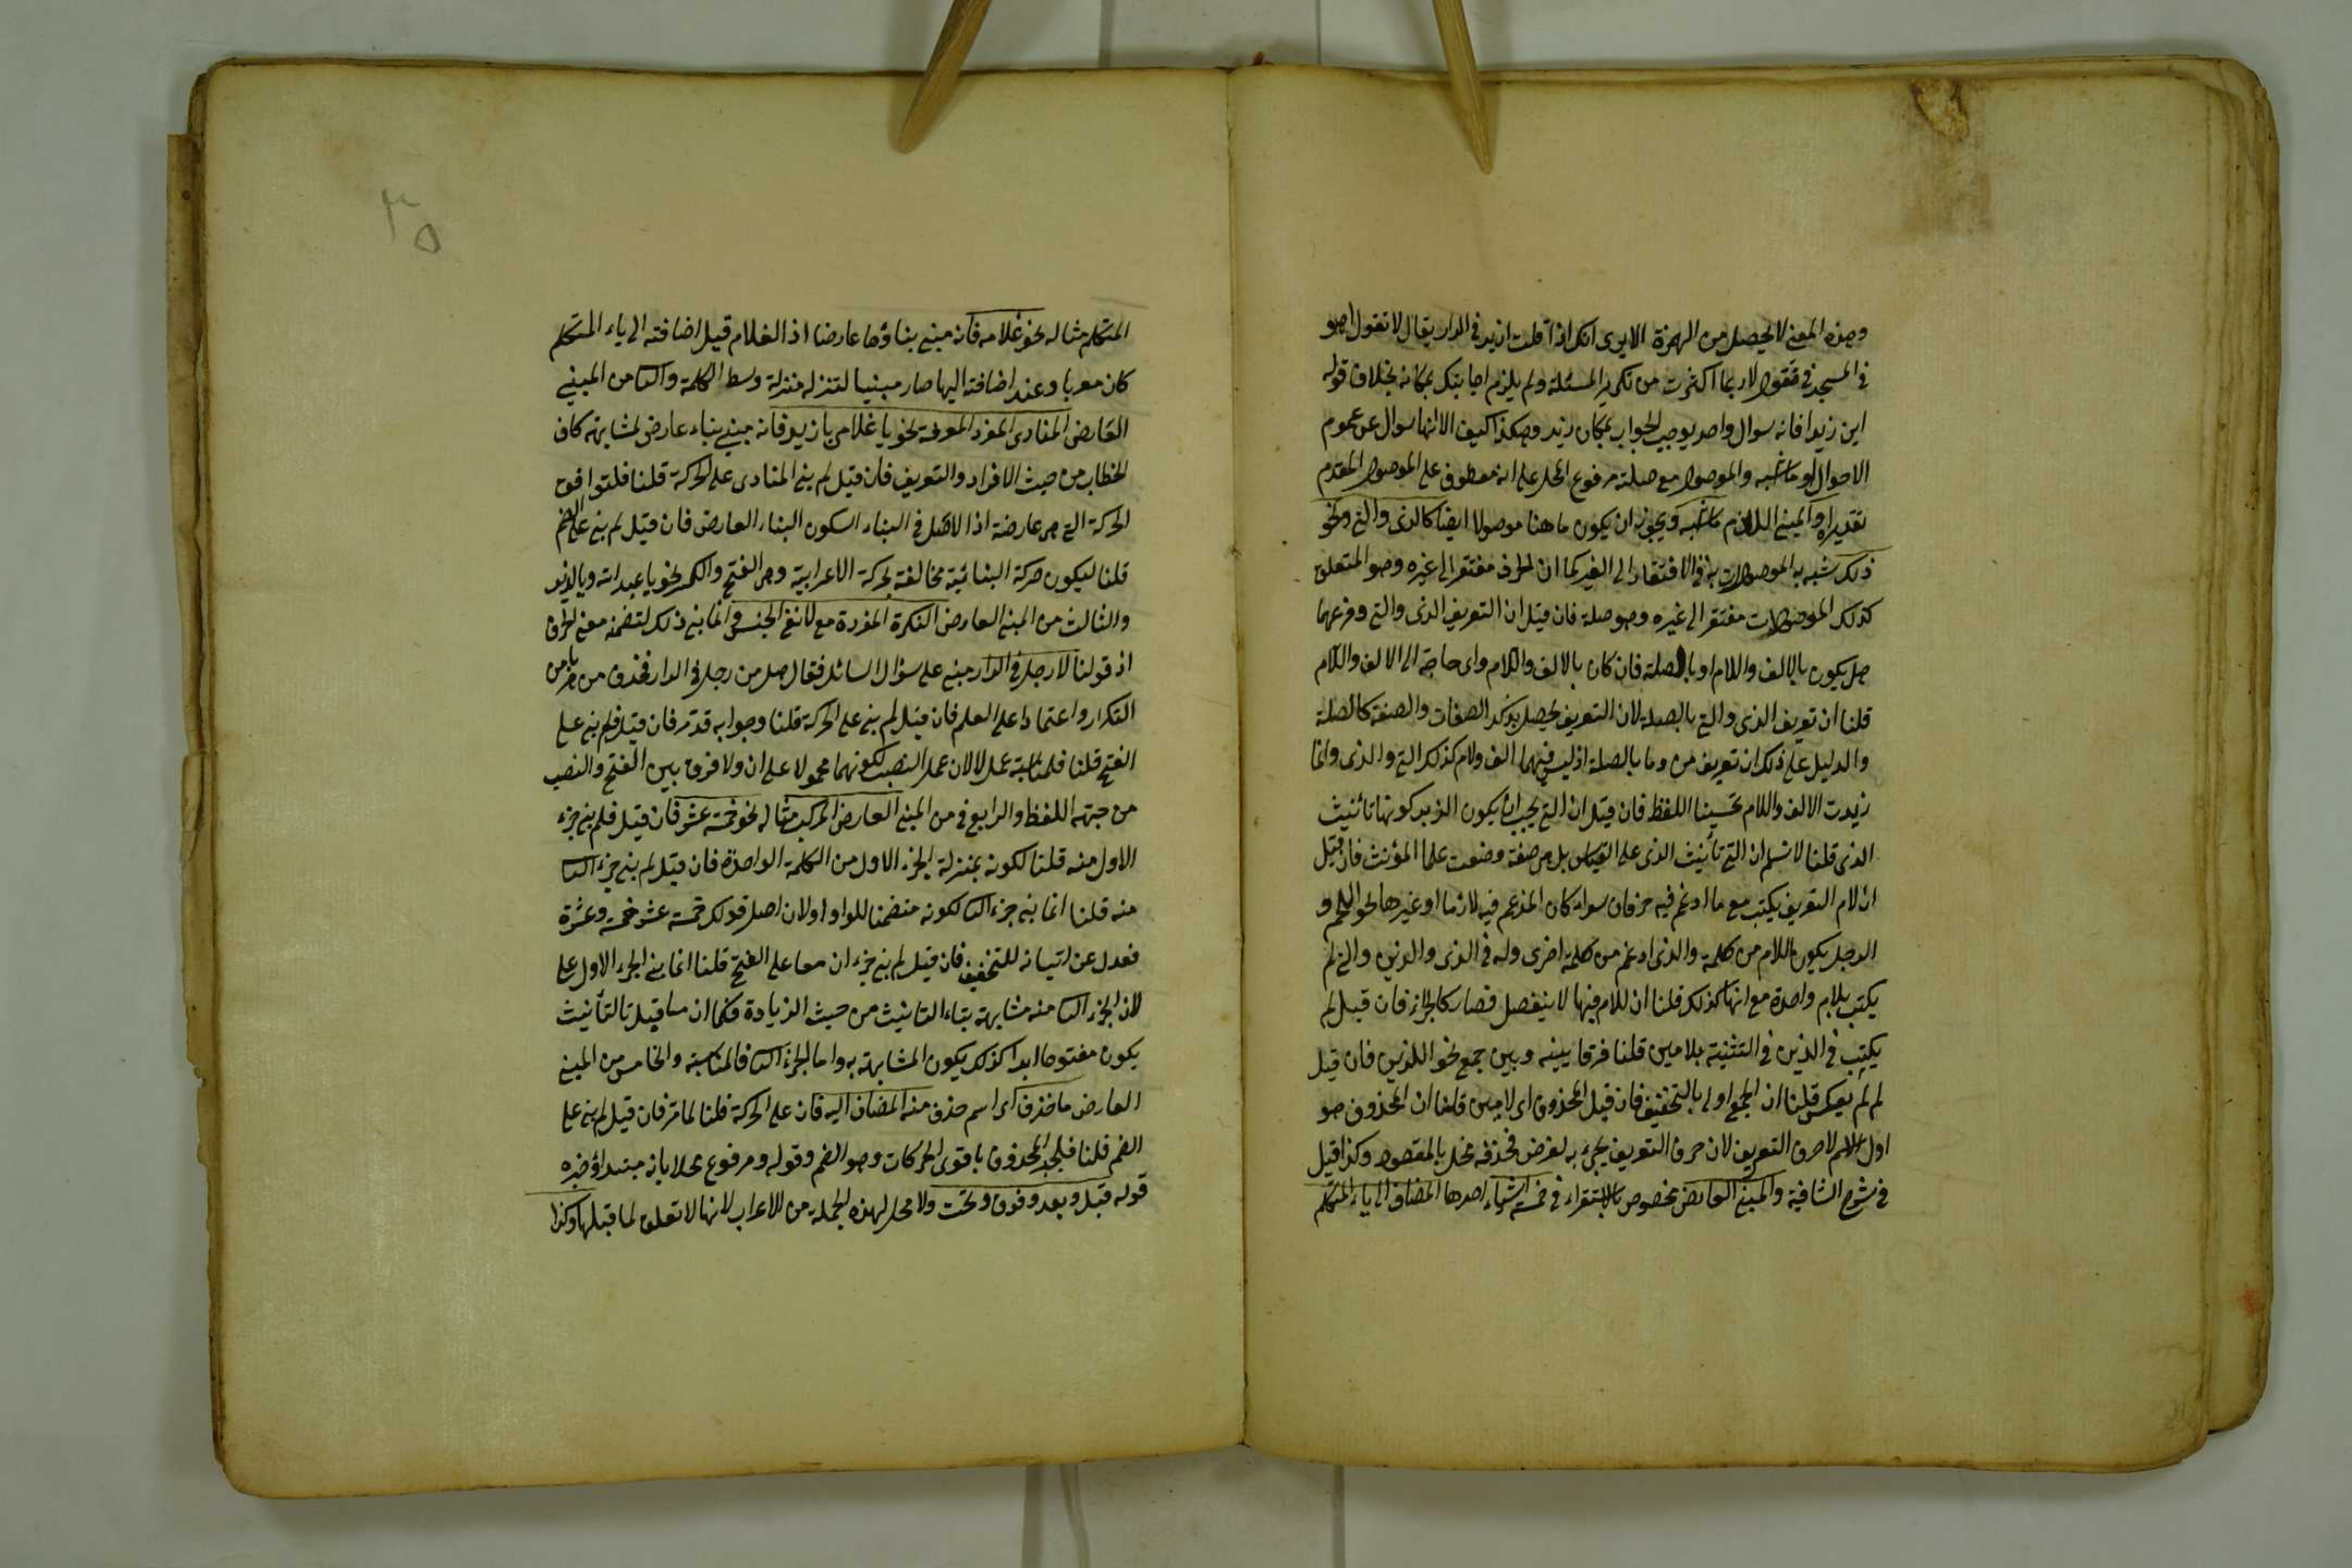 وهذه المعنى لا يحصل من الهمزة الا يرى انك اذا قلت ازيد في الدار يقال لا تقول اهو
في المسجد فتقول لا ربما اكثرت من تكرير المسئلة ولم يلزم اجابتك بمكانه بخلاف قوله
اين زيد فانه سوال واحد يوجب الجواب بمكان زيد وهكذا كيف الا انها سوال عن عموم
الاحوال او ما اشبه والموصول مع صلته مرفوع المحل على انه معطوف على الموصول المقدم
تقديره والمبني اللازم ما اشبه ويجوز ان يكون ما هنا موصولا ايضا كالذى والتي ونحو
ذلك شبه به الموصولات به في الافتقار الى الغير كما ان الحرف مفتقر الى غيره وهو المتعلق
كذلك الموصولات مفتقر الى غيره وهو صلة فان قيل ان التعريف الذى والتي وفرعهما
هل يكون بالالف واللام او بالصلة فان كان بالالف واللام واى حاجة الى الالف واللام
قلنا ان تعريف الذى والتي بالصلة لان التعريف يحصل بذكر الصفات والصفة كالصلة
والدليل على ذلك ان تعريف من وما بالصلة اذ ليس فيهما الف ولام كذلك التي والذى وانما
زيدت الالف واللام تحسينا اللفظ فان قيل ان التي يجب ان يكون الذيد كونها تانيث
الذى قلنا لا نسلم ان التي تأنيث الذى على القياس بل هى صفة وضعت علما المؤنث فان قيل
ان لام التعريف يكتب مع ما ادغم فيه حرفان سواء كان المدغم فيه لازما او غيرها نحو اللحم و
الرجل يكون اللام من كلمة والذى ادغم من كلمة اخرى وله في الذى والذين والتي لم
يكتب بلام واحدة مع انها كذلك قلنا ان للام فيها لا ينفصل فصار كالجزء فان قيل لم
يكتب في الذين في التثنية بلامين قلنا فرقا بينه وبين جمع نحو اللذين فان قيل
لم لم يعكس قلنا ان الجمع اولى بالتخفيف فان قيل المحذوف اى لامين قلنا ان المحذوف هو
اول الاسم لا حرف التعريف لان حرف التعريف يجىء به لغرض فحذفه مخل بالمقصود وكذا قيل
في شرح الشافية والمبني العارض مخصوص بالاستقراء في خمسة اشياء احدها المضاف الى ياء المتكلم
٣٥
المتكلم مثاله نحو غلامى فانه مبني بناؤها عارضا اذ الغلام قبل اضافته الى ياء المتكلم
كان معربا وعند اضافته اليها صار مبنيا لتنزله منزلة وسط الكلمة والثا من المبني
العارض المنادى المفرد المعرفة نحو يا غلام يا زيد فانه مبني بناء عارض لمشابهته كاف
الخطاب من حيث الافراد والتعريف فان قيل لم بني المنادى على الحركة قلنا فلتوافق
الحركة التي هى عارضة اذا الاصل في البناء السكون البناء العارض فان قيل لم بني على الضم
قلنا ليكون حركة البنائية مخالفة لحركة الاعرابية وهى الفتح والكسر نحو يا عبد الله ويا لزيد
والثالث من المبني العارض النكرة المفردة مع لا نفى الجنس وانما بني ذلك لتضمنه معنى الحرف
اذ قولنا لا رجل في الدار مبني على سؤال السائل فقال هل من رجل في الدار فحذف من هربا من
التكرار واعتمادا على العلم فان قيل لم بني على الحركة قلنا وجوابه قد مر فان قيل فلم بني على
الفتح قلنا فلمناسبة عمل لا لان عمل النصب لكونهما محمولا على ان ولا فرق بين الفتح والنصب
من جهة اللفظ والرابع في من المبني العارض المركب مثاله نحو خمسة عشر فان قيل فلم بني جزء
الاول منه قلنا لكونه بمنزلة الجزء الاول من الكلمة الواحدة فان قيل لم بني جزء الثا
منه قلنا انما بني جزء الثا لكونه متضمنا للواو اولان اصل قولك خمسة عشر خمسة وعشرة
فعدل عن اتيانه للتخفيف فان قيل لم بني جزء ان معا على الفتح قلنا انما بني الجزء الاول على
لان الجزء الثا منه مشابهة بتاء التانيث من حيث الزيادة فكما ان ما قبل تا التأنيث
يكون مفتوحا ابدا كذلك يكون المشابهة به واما الجزء الثا فالمناسبة والخامس من المبني
العارض ما حذف اى اسم حذف منه المضاف اليه فان على الحركة قلنا لما مر فان قيل لم بني على
الضم قلنا فليجبر المحذوف باقوى الحركات وهو الضم وقوله ومرفوع محلا بانه مبتداؤ خبره
قوله قبل وبعد وفوق وتحت ولا محل لهذه الجملة من الاعراب لانها لا تعلق لما قبلها وكذا